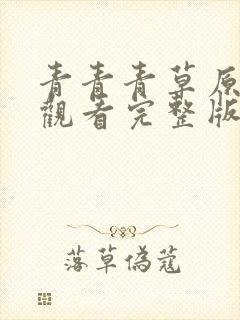 青青青草原
觀看完整版
落草偽蔻